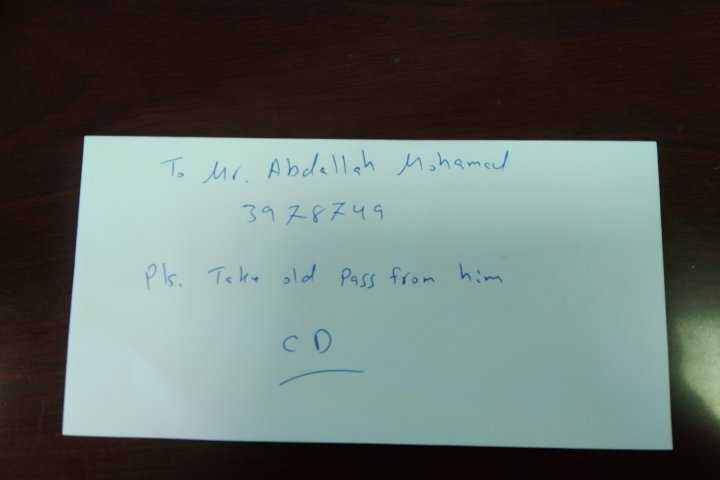 To Mr. Abdallah Mohamad
3978749
Pls. Take old Pass from him
CD